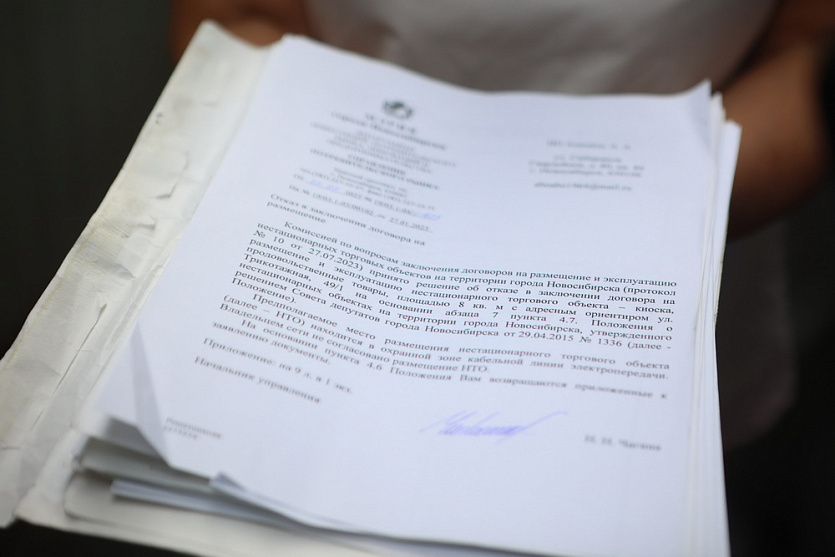 города Новосибирска
УПРАВЛЕНИЕ
ПОТРЕБИТЕЛЬСКОГО РЫНКА
Отказ в заключении договора на
размещение
Комиссией по вопросам заключения договоров на размещение и эксплуатацию
нестационарных торговых объектов на территории города Новосибирска (протокол
№ 10 от 27.07.2023) принято решение об отказе в заключении договора на
размещение и эксплуатацию нестационарного торгового объекта – киоска,
продовольственные товары, площадью 8 кв. м с адресным ориентиром ул.
Трикотажная, 49/1 на основании абзаца 7 пункта 4.7. Положения о
нестационарных объектах на территории города Новосибирска, утвержденного
решением Совета депутатов города Новосибирска от 29.04.2015 № 1336 (далее -
Положение).
Предполагаемое место размещения нестационарного торгового объекта
(далее – НТО) находится в охранной зоне кабельной линии электропередачи.
Владельцем сети не согласовано размещение НТО.
На основании пункта 4.6 Положения Вам возвращаются приложенные к
заявлению документы.
Приложение: на 9 л. в 1 экз.
Начальник управления